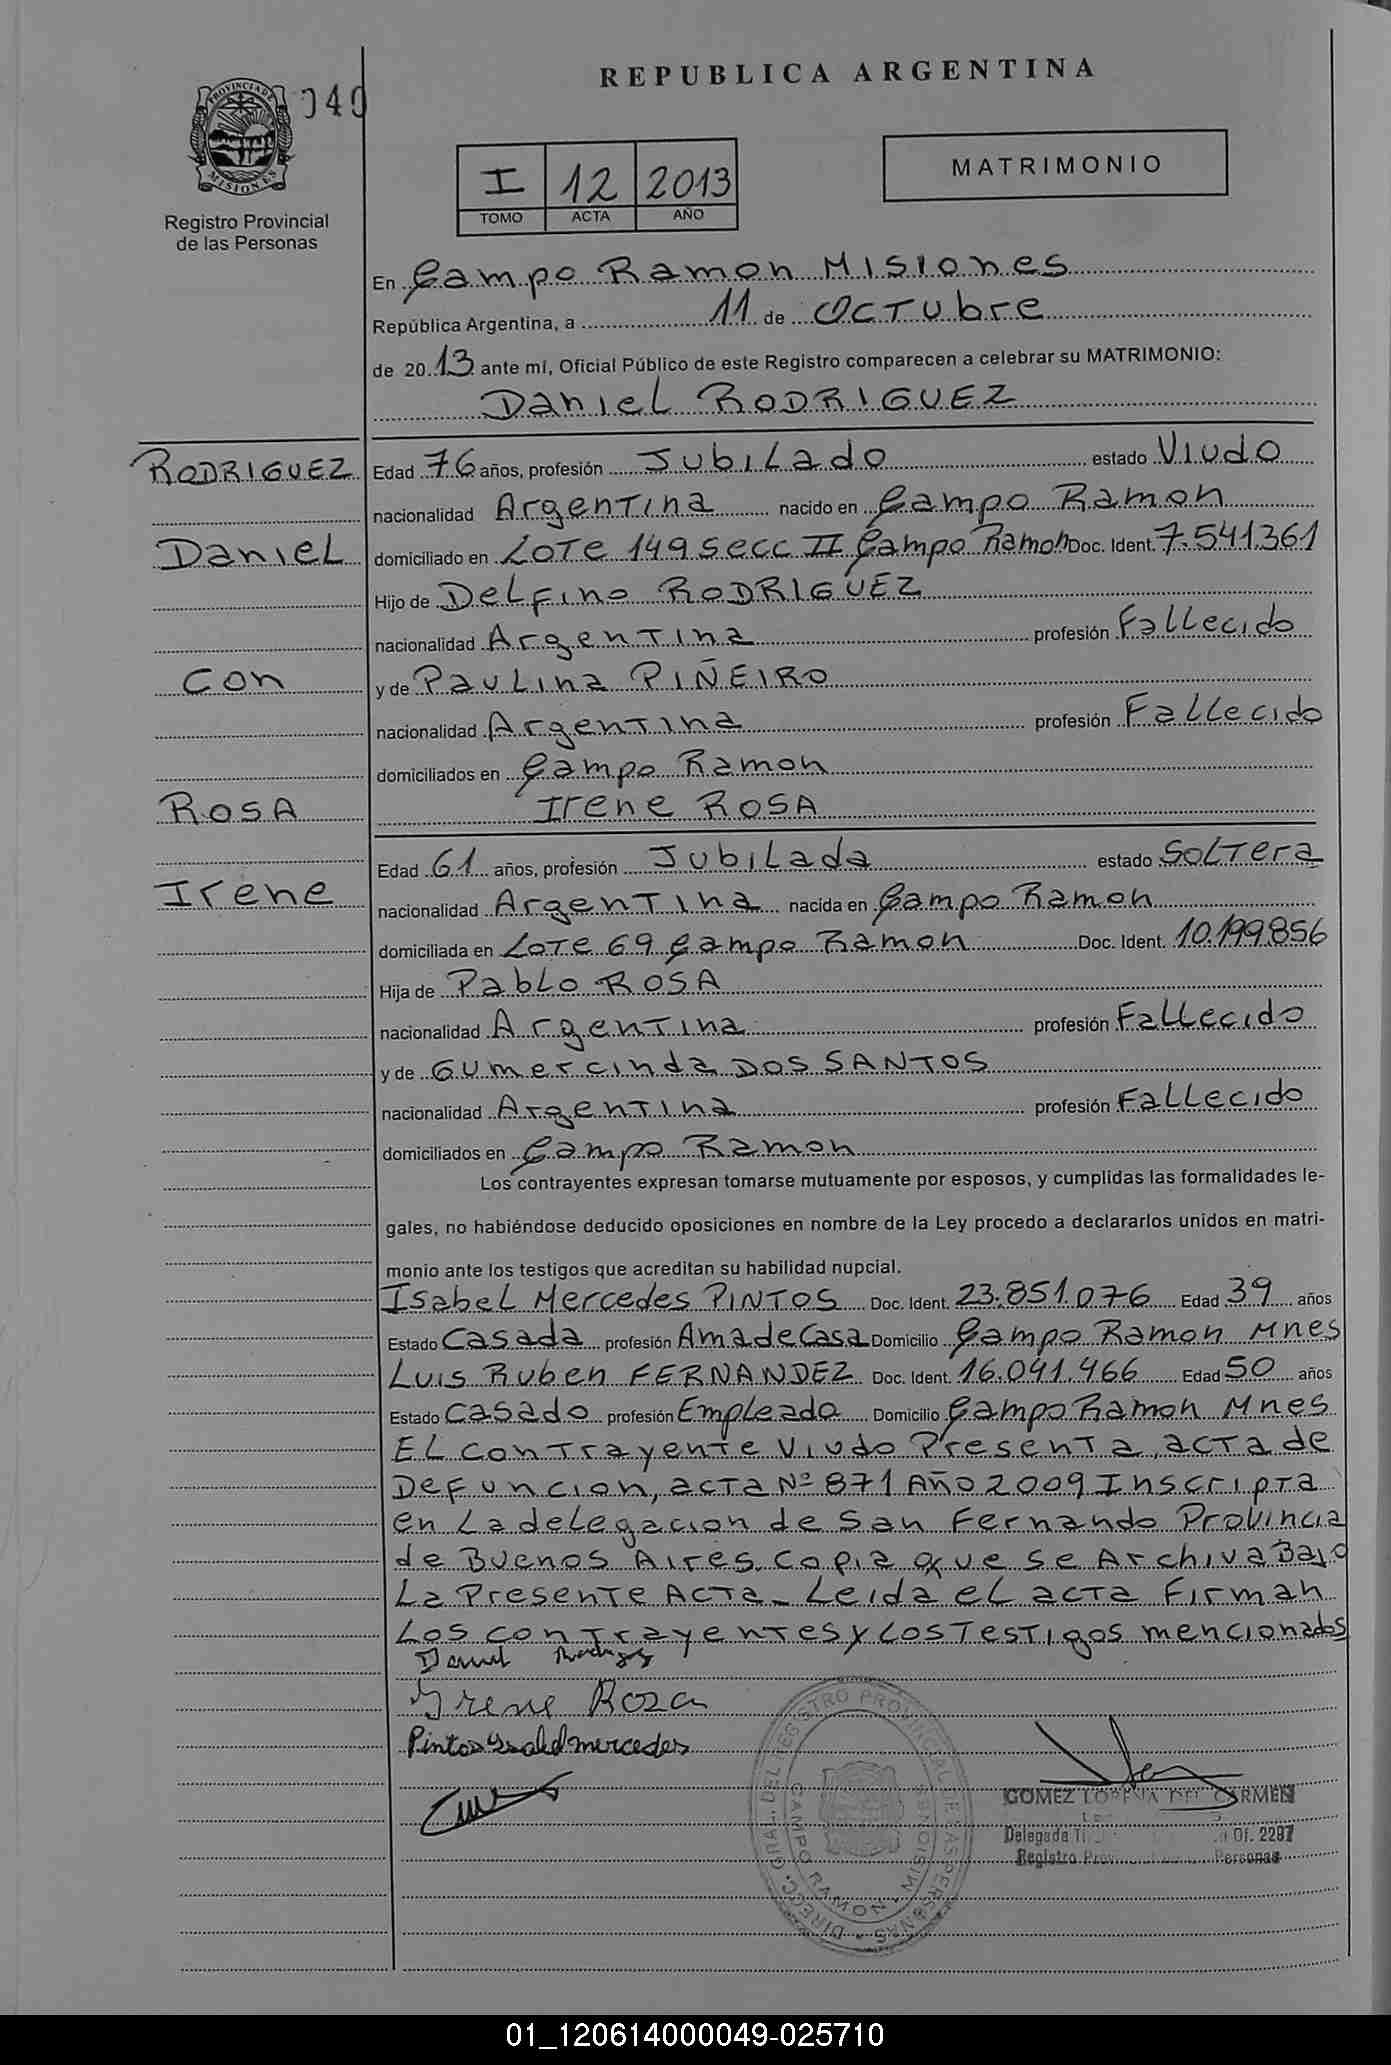 REPUBLICA ARGENTINA
PROVINCIA DE
MISIONES
040
Registro Provincial
de las Personas
I 12 2013
TOMO ACTA AÑO
MATRIMONIO
En Campo Ramon Misiones
República Argentina, a 11 de Octubre
de 2013 ante mí, Oficial Público de este Registro comparecen a celebrar su MATRIMONIO:
Daniel RODRIGUEZ
RODRIGUEZ
Daniel
con
ROSA
Irene
Edad 76 años, profesión Jubilado estado Viudo
nacionalidad Argentina nacido en Campo Ramon
domiciliado en Lote 149 secc II Campo Ramon Doc. Ident. 7.541.361
Hijo de Delfino RODRIGUEZ
nacionalidad Argentina profesión Fallecido
y de Paulina PIÑEIRO
nacionalidad Argentina profesión Fallecido
domiciliados en Campo Ramon
Irene ROSA
Edad 61 años, profesión Jubilada estado Soltera
nacionalidad Argentina nacida en Campo Ramon
domiciliada en Lote 69 Campo Ramon Doc. Ident. 10.199.856
Hija de Pablo ROSA
nacionalidad Argentina profesión Fallecido
y de Gumercinda DOS SANTOS
nacionalidad Argentina profesión Fallecido
domiciliados en Campo Ramon
Los contrayentes expresan tomarse mutuamente por esposos, y cumplidas las formalidades le-
gales, no habiéndose deducido oposiciones en nombre de la Ley procedo a declararlos unidos en matri-
monio ante los testigos que acreditan su habilidad nupcial.
Isabel Mercedes PINTOS Doc. Ident. 23.851.076 Edad 39 años
Estado Casada profesión Ama de Casa Domicilio Campo Ramon Mnes
Luis Ruben FERNANDEZ Doc. Ident. 16.041.466 Edad 50 años
Estado Casado profesión Empleado Domicilio Campo Ramon Mnes
El contrayente Viudo Presenta, acta de
Defuncion, acta Nº 871 Año 2009 Inscripta
en La delegacion de San Fernando Provincia
de Buenos Aires. copia que se Archiva Bajo
La Presente Acta_ Leida el acta Firman
Los contrayentes y Los Testigos mencionados
Daniel Rodriguez
Irene Roza
Pintos Ysabel mercedes
DIRECC. GRAL. DEL REGISTRO PROVINCIAL DE LAS PERSONAS
CAMPO RAMON • MISIONES
GOMEZ LORENA DEL CARMEN
Delegada Of. 2297
Registro Personas
01_120614000049-025710